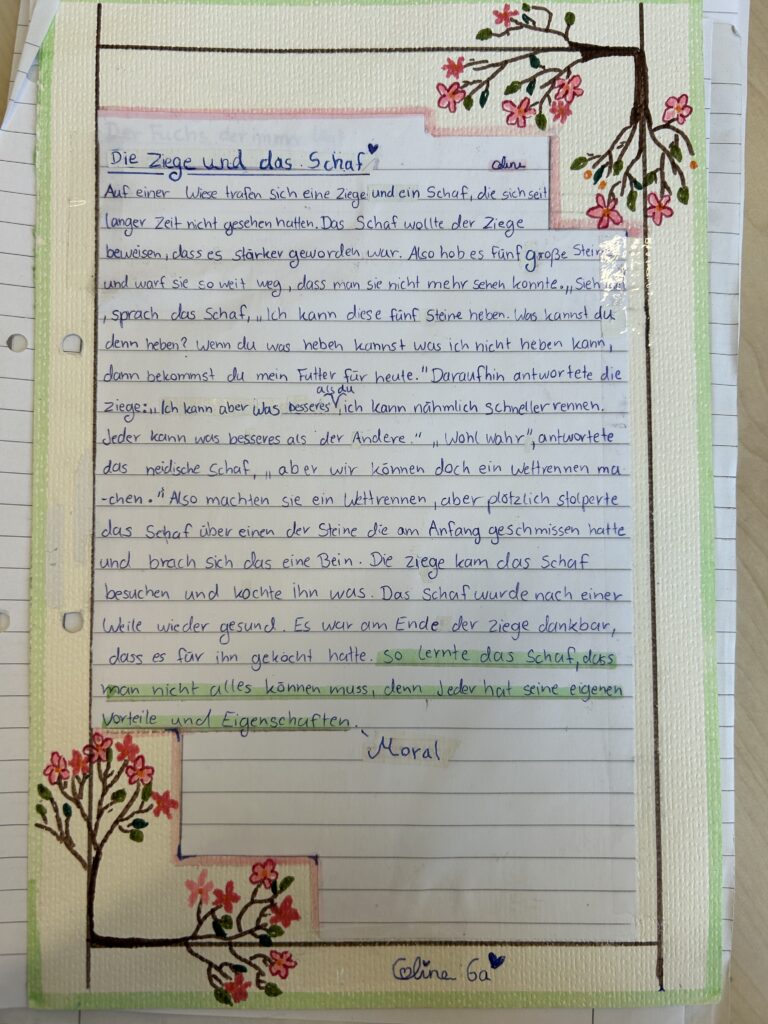 Die Ziege und das Schaf
Coline
Auf einer Wiese trafen sich eine Ziege und ein Schaf, die sich seit
langer Zeit nicht gesehen hatten. Das Schaf wollte der Ziege
beweisen, dass es stärker geworden war. Also hob es fünf große Stein
und warf sie so weit weg, dass man sie nicht mehr sehen konnte. „Sieh
, sprach das Schaf, „Ich kann diese fünf Steine heben. Was kannst du
denn heben? Wenn du was heben kannst was ich nicht heben kann,
dann bekommst du mein Futter für heute." Daraufhin antwortete die
als du
Ziege: „Ich kann aber was besseres, ich kann nähmlich schneller rennen.
Jeder kann was besseres als der Andere." „Wohl wahr", antwortete
das neidische Schaf, „aber wir können doch ein Wettrennen ma-
-chen." Also machten sie ein Wettrennen, aber plötzlich stolperte
das Schaf über einen der Steine die am Anfang geschmissen hatte
und brach sich das eine Bein. Die Ziege kam das Schaf
besuchen und kochte ihn was. Das Schaf wurde nach einer
Weile wieder gesund. Es war am Ende der Ziege dankbar,
dass es für ihn gekocht hatte. So lernte das Schaf, dass
man nicht alles können muss, denn Jeder hat seine eigenen
Vorteile und Eigenschaften.
Moral
Coline 6a